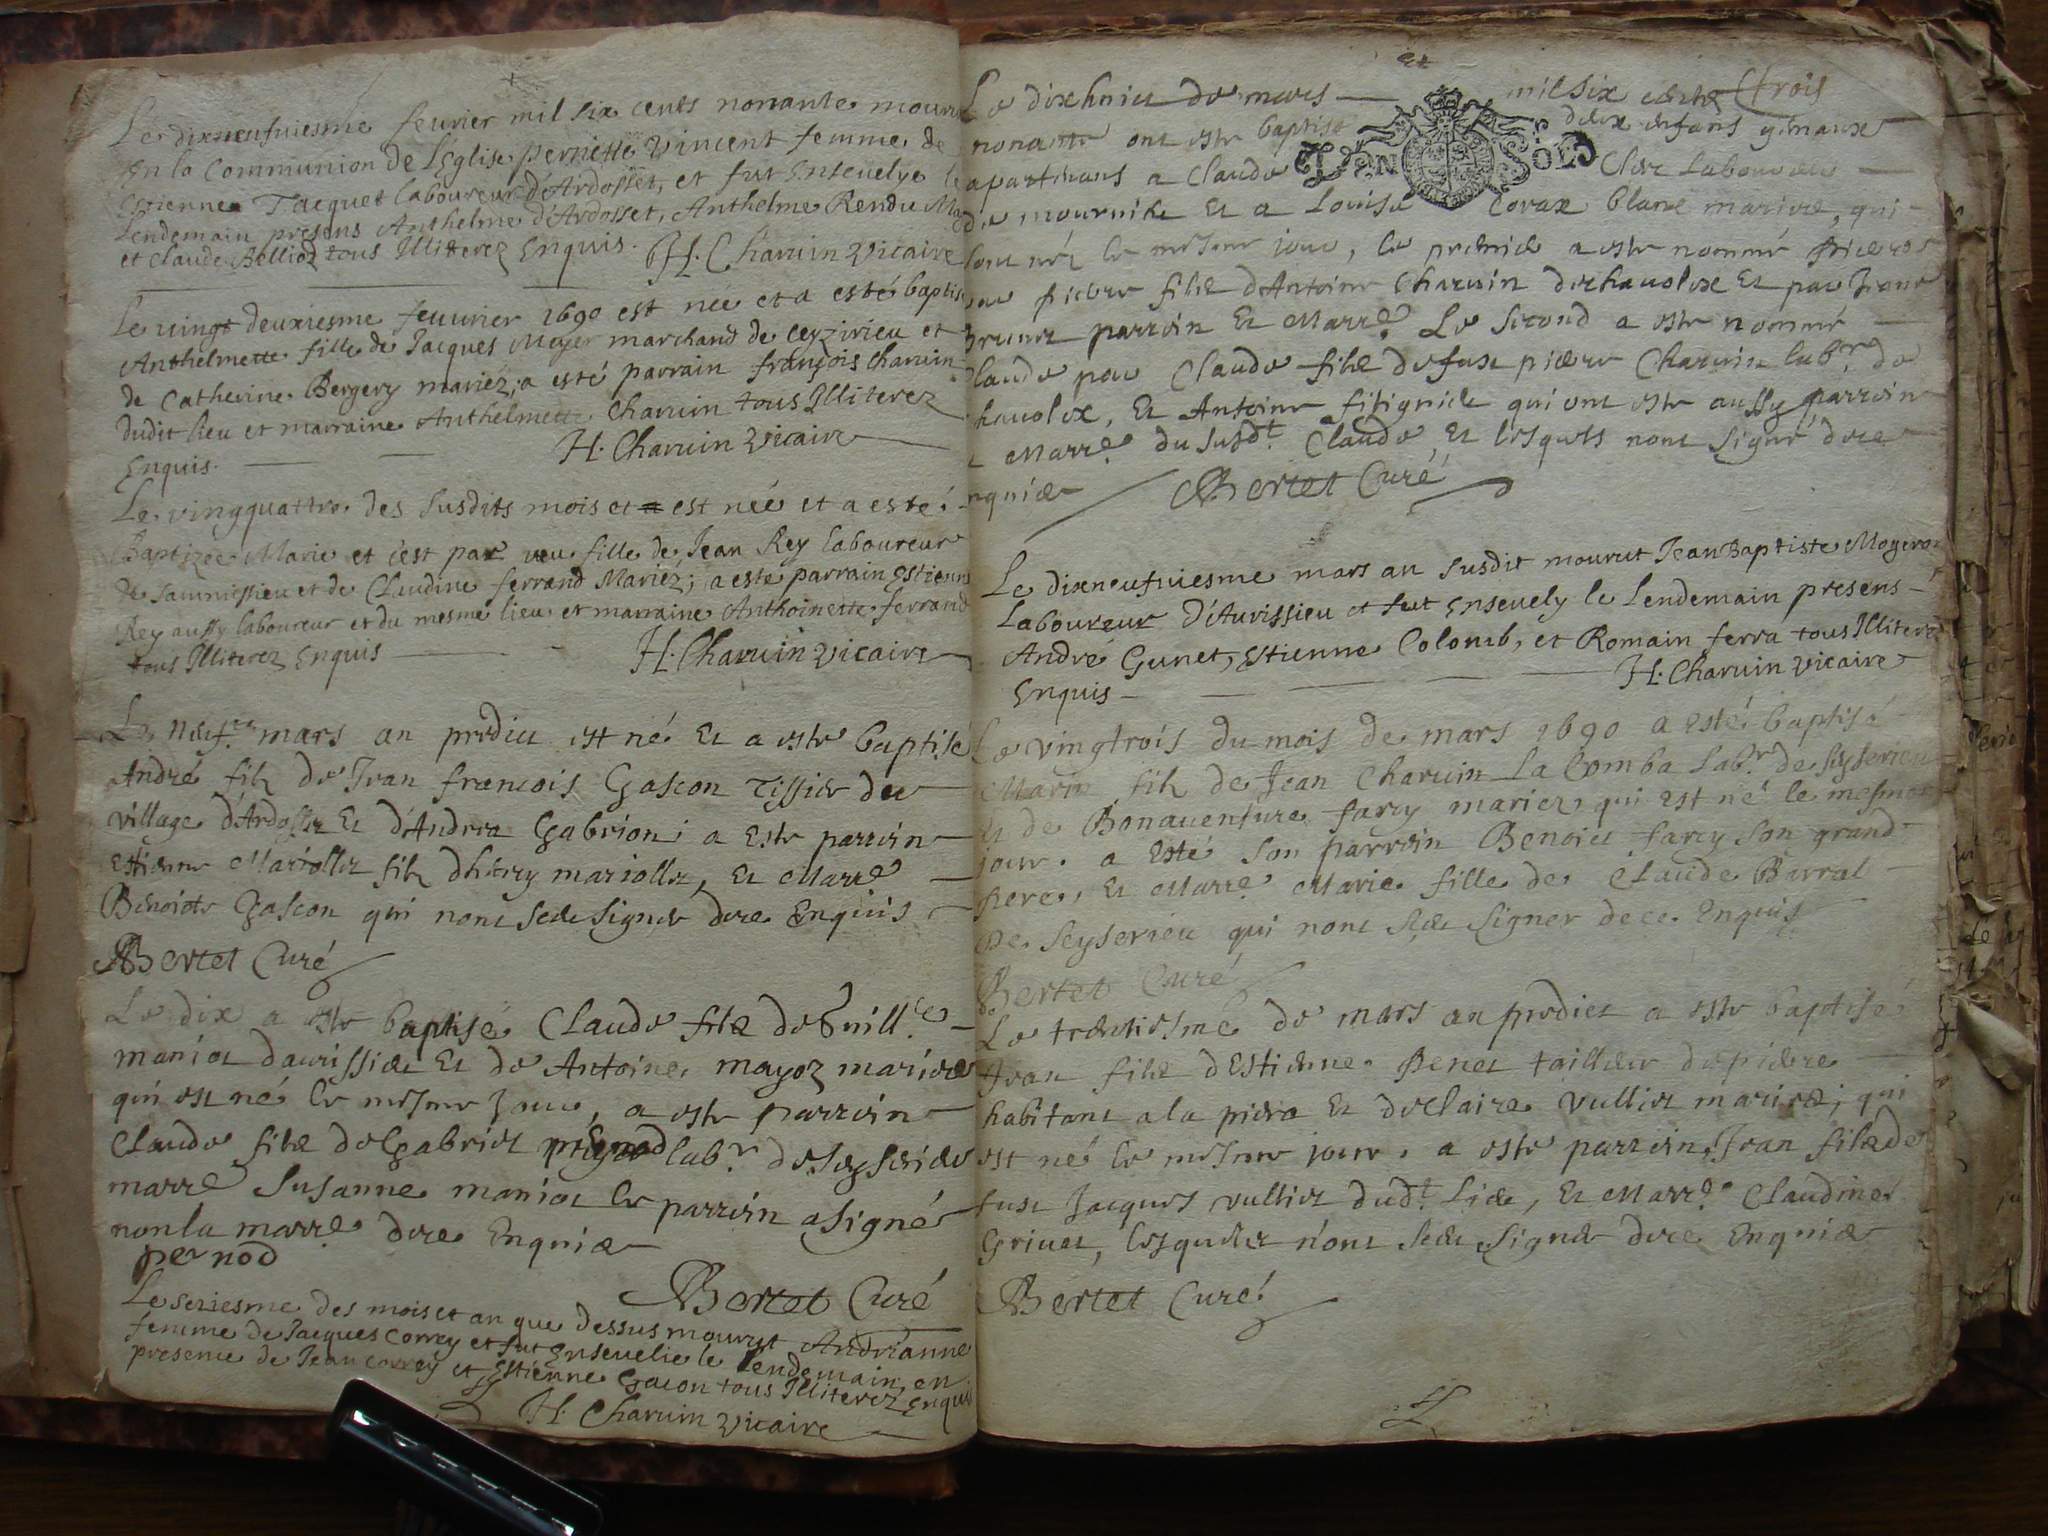 Le dixneufuiesme feurier mil six cents nonante mourut
En la Communion de l'Eglise pernette Vincent femme de
Estienne Jacquet laboureur d'Ardosset, et fut Enseuelye le
Lendemain presens Anthelme d'Ardosset, Anthelme Rendu
et Claude Belliod tous Illiterez Enquis. H. Charuin Vicaire
Le vingt deuxiesme feurier 1690 est née et a esté baptisé
Anthelmette fille de Jacques Moyer marchand de Ceyzirieu et
de Catherine Bergery mariéz, a esté parrain françois Charuin
dudit lieu et marraine Anthelmette Charuin tous Illiterez
Enquis. H. Charuin Vicaire
Le vingquattre des susdits mois et a est née et a esté
Baptizée Marie et c'est par veu fille de Jean Rey laboureur
de et de Claudine ferrand Mariéz; a esté parrain Estienne
Rey aussy laboureur et du mesme lieu et marraine Anthoinette ferrand
tous Illiterez Enquis H. Charuin Vicaire
Le mars an predict est né Et a este baptisé
André filz de Jean francois Gascon Tissier du
village d'Ardosset Et d'Andrea Gabrion; a Este parrein
Estienne Mariollet filz dhenry mariollet, Et Marre
Benoiste Gascon qui nont sceu signer de ce Enquis
Bertet Curé
Le dix a este baptisé Claude filz de Guill.e
maniot daurissieu Et de Antoine mayoz mariez
qui est né le mesme jour, a este parrein
Claude filz de Gabriel pernod lab.r de Seyserieu
marre Susanne maniot le parrein a signé
non la marre de ce Enquis
pernod
Bertet Curé
Le seziesme des mois et an que dessus mourut Andrianne
femme de Jacques Correy et fut Enseuelie le Lendemain, en
presence de Jean Correy et Estienne Gacon tous Illiterez Enquis
H. Charuin Vicaire
Le dixhuict de mars mil six cents trois
nonante ont este baptisé deux enfans gemaux
apartenans a Claude Clerc Laboureur
de mournieu Et a Louise Corax blanc mariez, qui
sont néz le mesme jour, le premier a este nommé pierre
par pierre filz d'Antoine Charuin de chauoley Et par Jeane
brunet parrein Et Marre. Le second a este nommé
Claude par Claude filz de feu piere Charuin lab.r de
chauoley, Et Antoine qui ont este aussy parrein
Et Marre. du susd.t Claude, Et lesquels nont signé de ce
enquis Bertet Curé
Le dixneufuiesme mars an susdit mourut Jean Baptiste Mogeron
Laboureur D'Aurissieu et fut Enseuely le Lendemain presens
André Gunet, Estienne Colomb, et Romain ferra tous Illiterez
Enquis H. Charuin Vicaire
Le vingtrois du mois de mars 1690 a esté baptisé
Marin filz de Jean Charuin La Comba Lab.r de Seyserieu
Et de Bonauenture farcy mariez, qui est né le mesme
jour. a Esté son parrein Benoict farcy son grand
pere, Et Marre Marie fille de Claude Barral
De Seyserieu qui nont sceu signer de ce Enquis
Bertet Curé
Le trentiesme de mars an predict a este baptisé
Jean filz d'Estienne Benet tailleur de piere
habitant a la piera Et de Claire Vulliet mariez; qui
est né le mesme jour. a este parrein Jean filz de
fust Jacques Vulliet dud.t Lieu, Et Marre. Claudine
Griuet, lesquelz n'ont sceu signer de ce Enquis
Bertet Curé